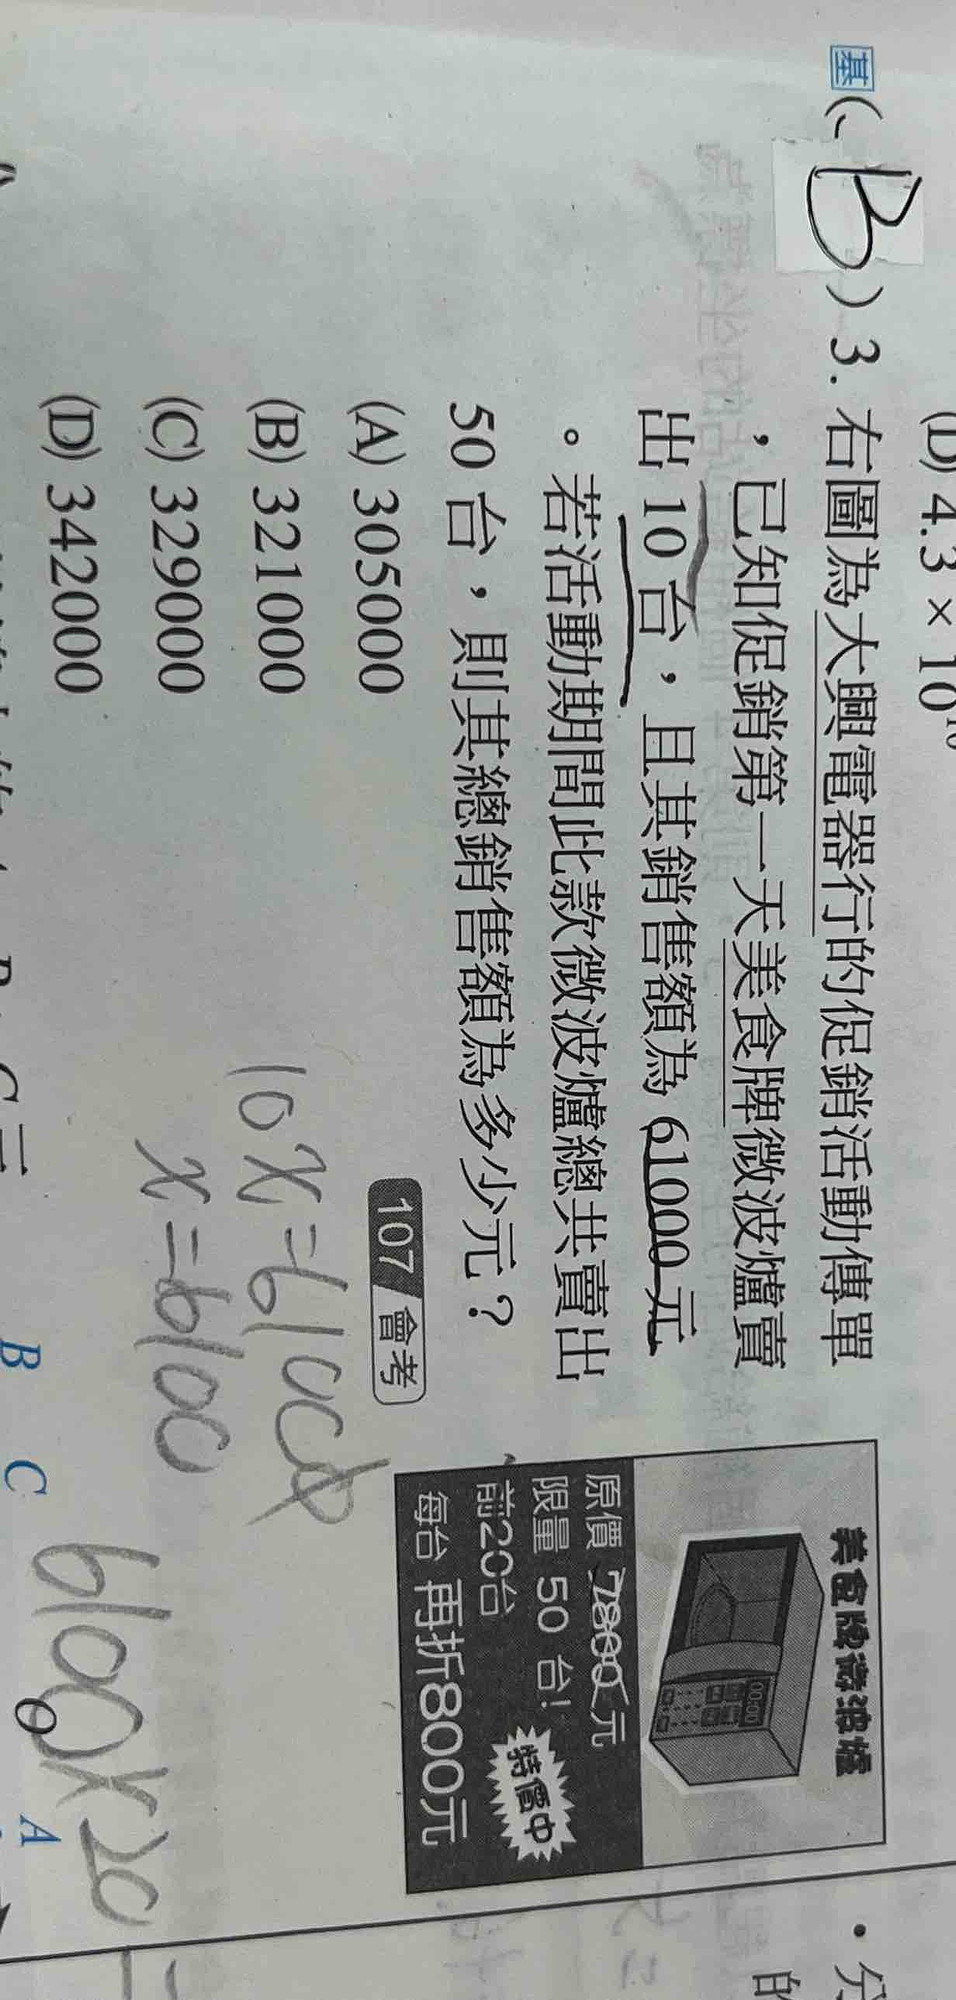 (D) 4.3 × 10¹⁰
基( B ) 3. 右圖為大興電器行的促銷活動傳單
，已知促銷第一天美食牌微波爐賣
出 10 台，且其銷售額為 61000 元
。若活動期間此款微波爐總共賣出
50 台，則其總銷售額為多少元？
107 會考
(A) 305000
(B) 321000
(C) 329000
(D) 342000
美食牌微波爐
00:00
原價 7800元
限量 50 台!
前20台
每台 再折800元
特價中
10x = 61000
x = 6100
6100 × 20
B C
A